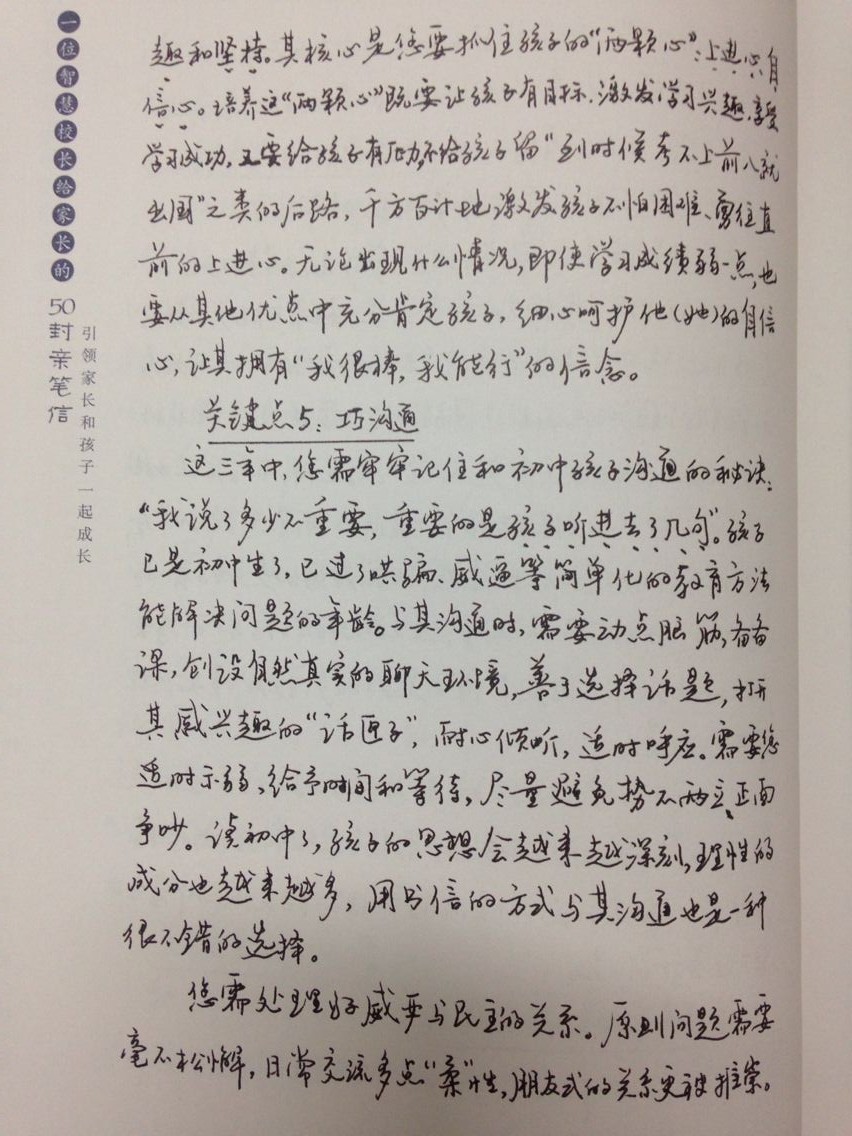 一位智慧校长给家长的
50封亲笔信
引领家长和孩子一起成长
趣和坚持。其核心是您要抓住孩子的“两颗心”：上进心、自
信心。培养这“两颗心”既要让孩子有目标，激发学习兴趣，享受
学习成功，又要给孩子有压力，不给孩子留“到时候考不上前八就
出国”之类的后路，千方百计地激发孩子不怕困难、勇往直
前的上进心。无论出现什么情况，即使学习成绩弱一点，也
要从其他优点中充分肯定孩子，细心呵护他（她）的自信
心，让其拥有“我很棒，我能行”的信念。
关键点5：巧沟通
这三年中，您需牢牢记住和初中孩子沟通的秘诀：
“我说了多少不重要，重要的是孩子听进去了几句”。孩子
已是初中生了，已过了哄骗、威逼等简单化的教育方法
能解决问题的年龄。与其沟通时，需要动点脑筋，备备
课，创设自然真实的聊天环境，善于选择话题，打开
其感兴趣的“话匣子”，耐心倾听，适时呼应。需要您
适时示弱、给予时间和等待，尽量避免势不两立、正面
争吵。读初中了，孩子的思想会越来越深刻，理性的
成分也越来越多，用书信的方式与其沟通也是一种
很不错的选择。
您需处理好威严与民主的关系。原则问题需要
毫不松懈，日常交流多点“柔”性，朋友式的关系更被推崇。